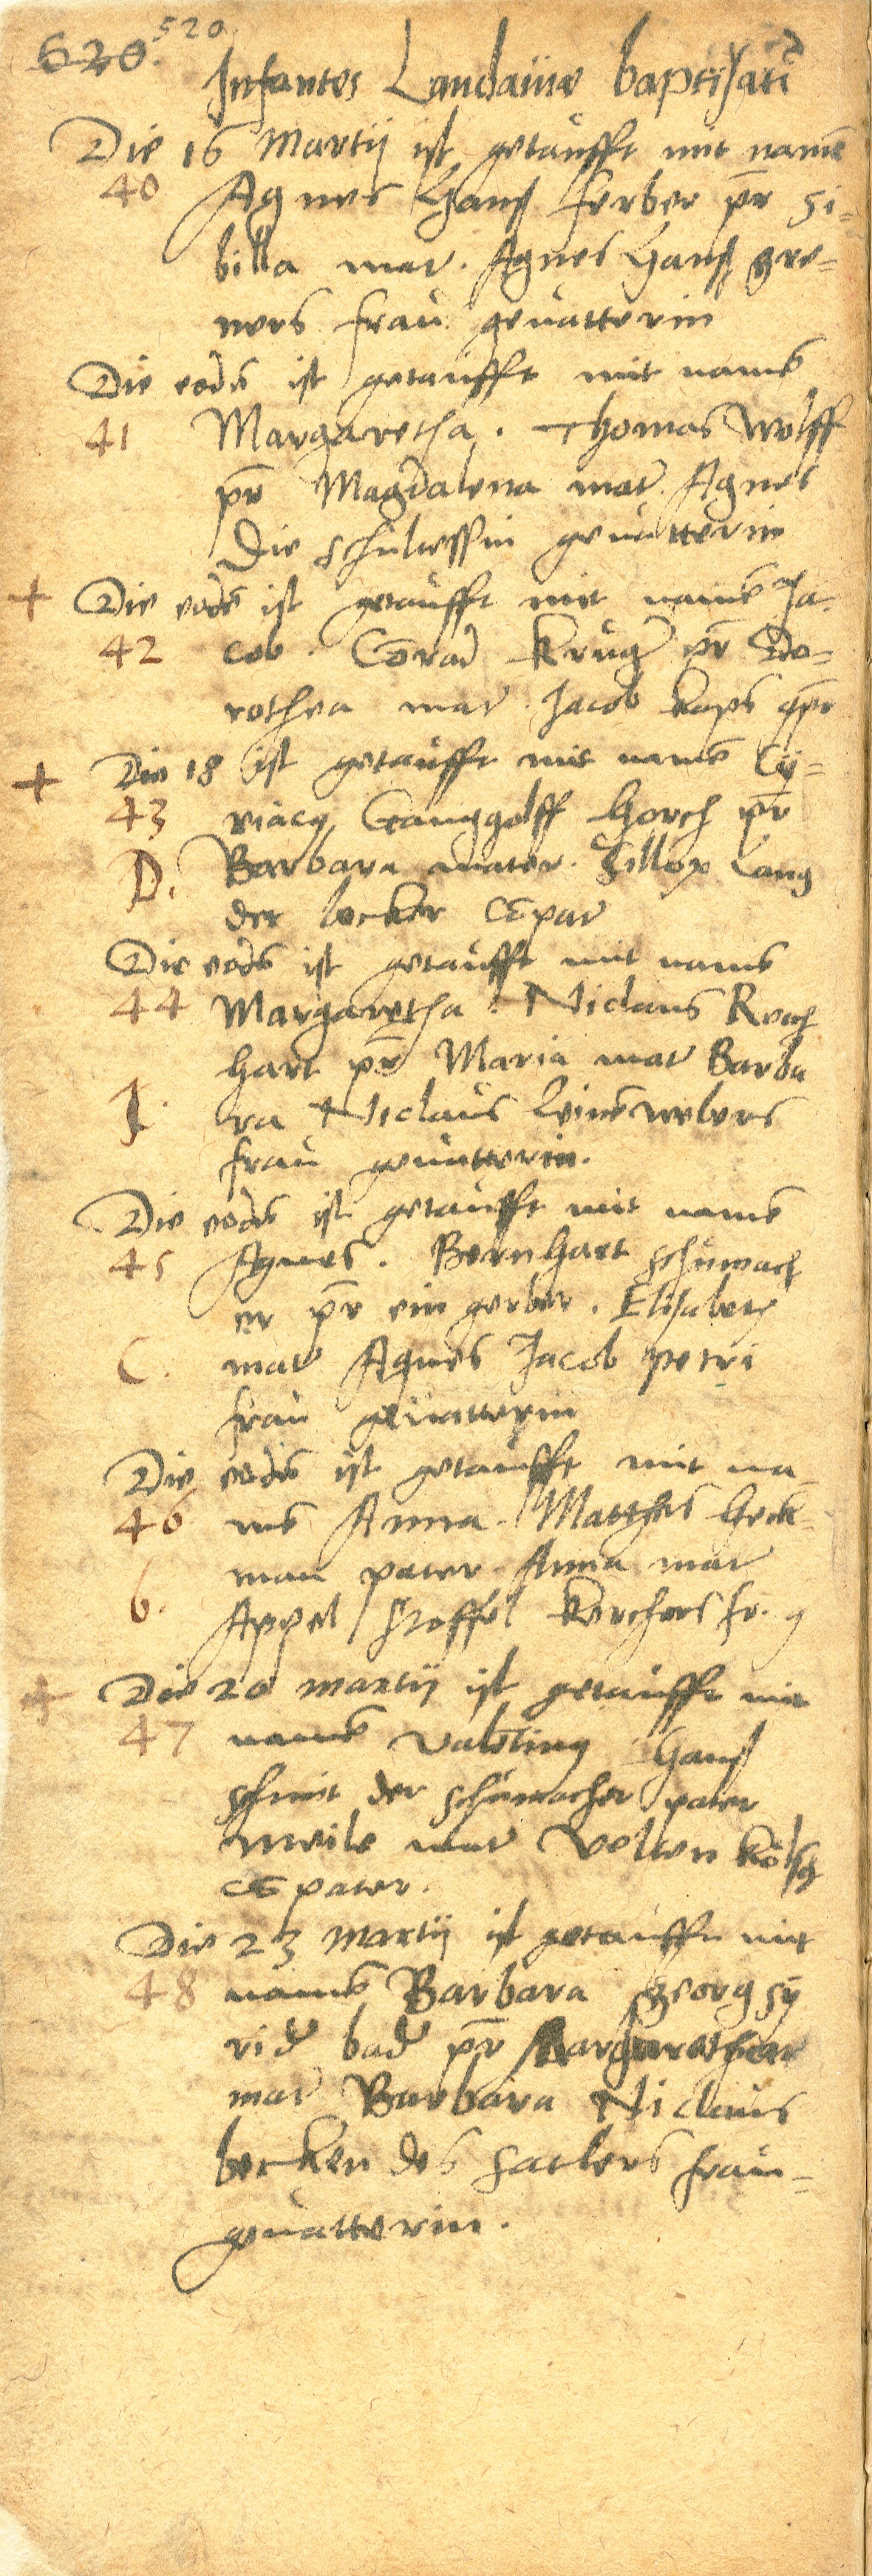 620. 520
Infantes Landauiæ baptisati
Die 16 Martij ist getaufft mit namē
40 Agnes Hanß ferber pr̄ Si-
billa mat̄. Agnes Hanß gre-
ners frau geuatterin
Die eodē ist getaufft mit namē
41 Margaretha. Thomas Wolff
pr̄ Magdalena mat̄. Agnes
Die schultessin geuatterin
+ Die eodē ist getaufft mit namē Ja-
42 cob. Cōrad Krug pr̄ Do-
rothea mat̄. Jacob kaps
+ Die 18 ist getaufft mit namē Cÿ-
43 riacq Ganggolff Horch pr̄
D. Barbara mater. Lang
der becker cōpar
Die eodē ist getaufft mit namē
44 Margaretha. Niclaus Rech
hart pr̄ Maria mat̄ Barba
J. ra Niclaus Leinēwebers
frau geuatterin.
Die eodē ist getaufft mit namē
45 Agnes. Bernhart schumach
er pr̄ ein gerber. Elisabeth
C. mat̄ Agnes Jacob petri
frau geuatterin
Die eodē ist getaufft mit na-
46 mē Anna. Matthes Heck-
man pater. Anna mat̄
b. Appel Stoffel kerchers fr. g
+ Die 20 martij ist getaufft mit
47 namē valētinq Hanß
schmit der schumacher pater
mat̄ Velten kölsch
cōpater.
Die 23 Martij ist getaufft mit
48 namē Barbara georg sÿ
rid bad pr̄ Margarethae
mat̄ Barbara Niclaus
becken des satlers frau-
geuatterin.